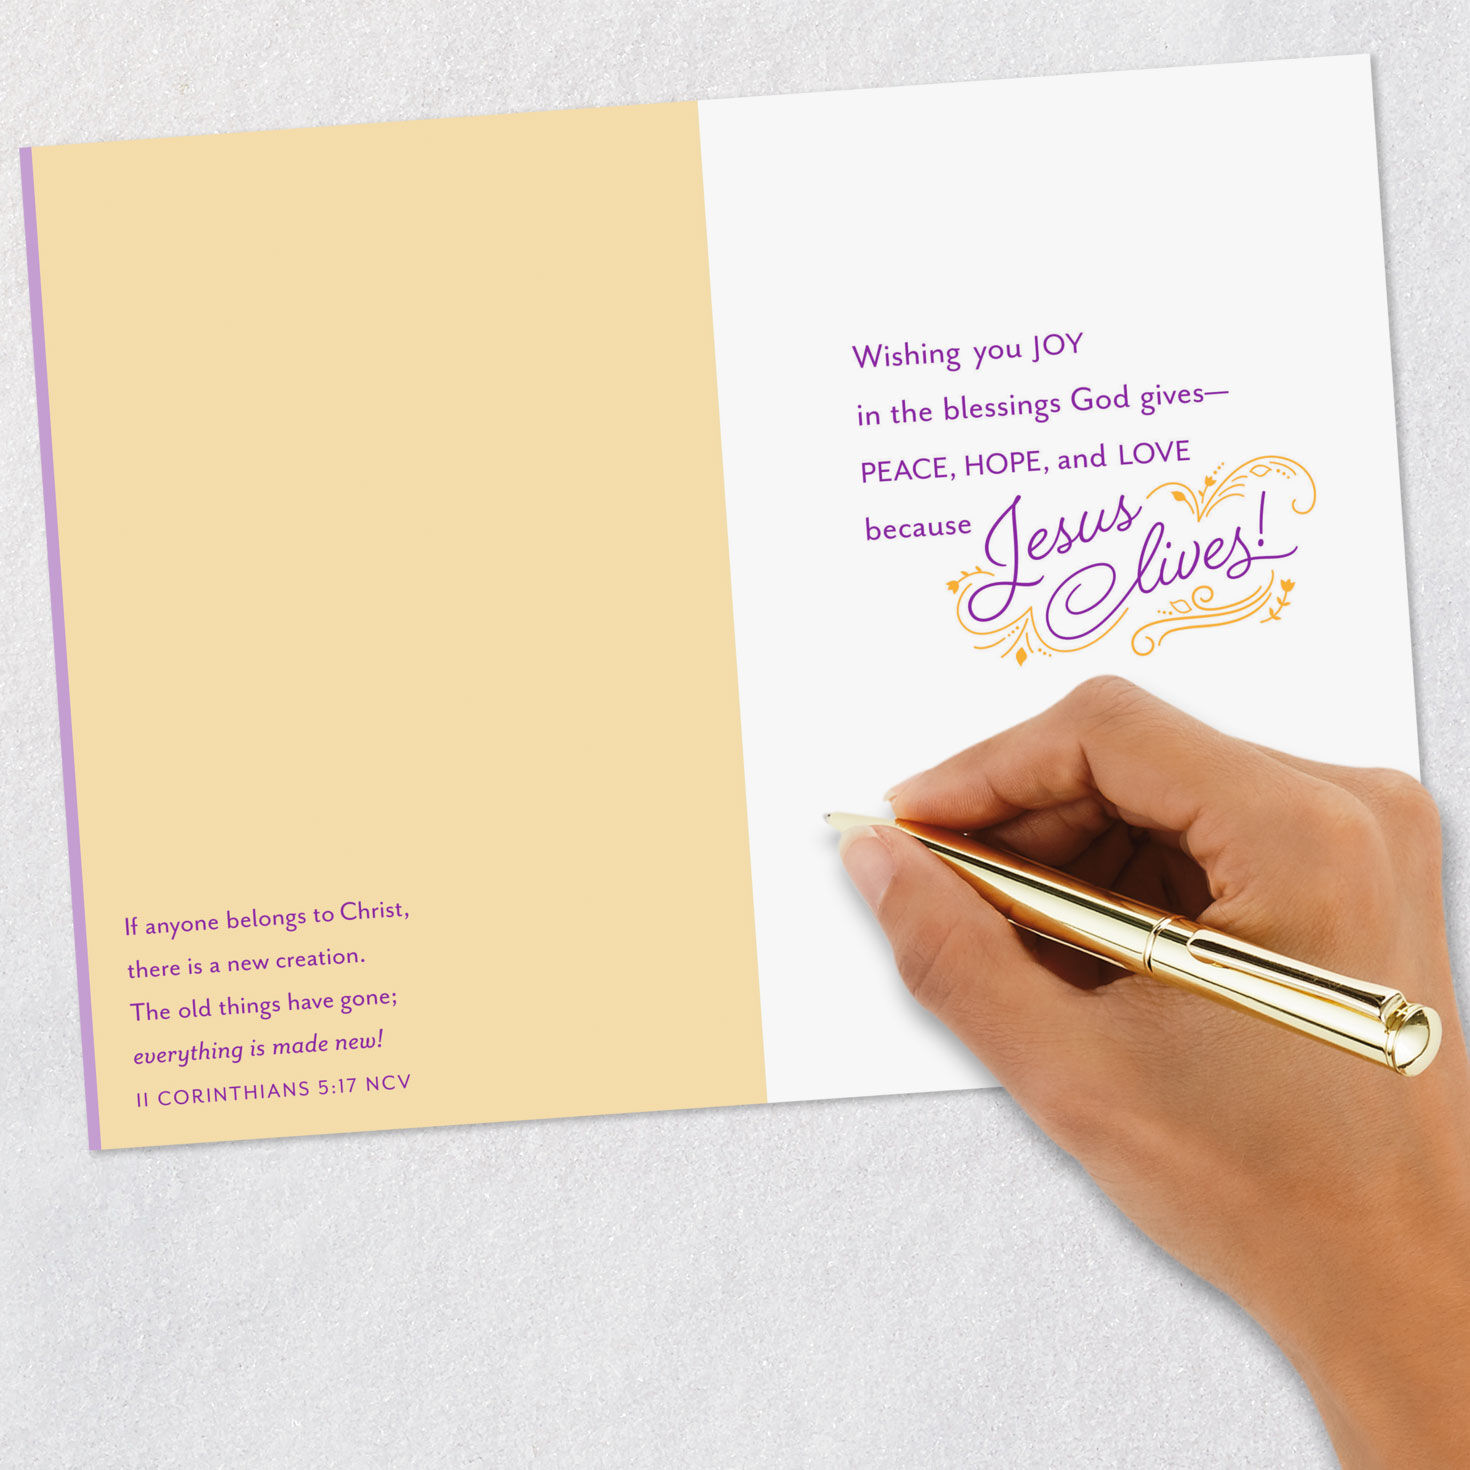 If anyone belongs to Christ,
there is a new creation.
The old things have gone;
everything is made new!
II CORINTHIANS 5:17 NCV
Wishing you JOY
in the blessings God gives—
PEACE, HOPE, and LOVE
because Jesus
lives!